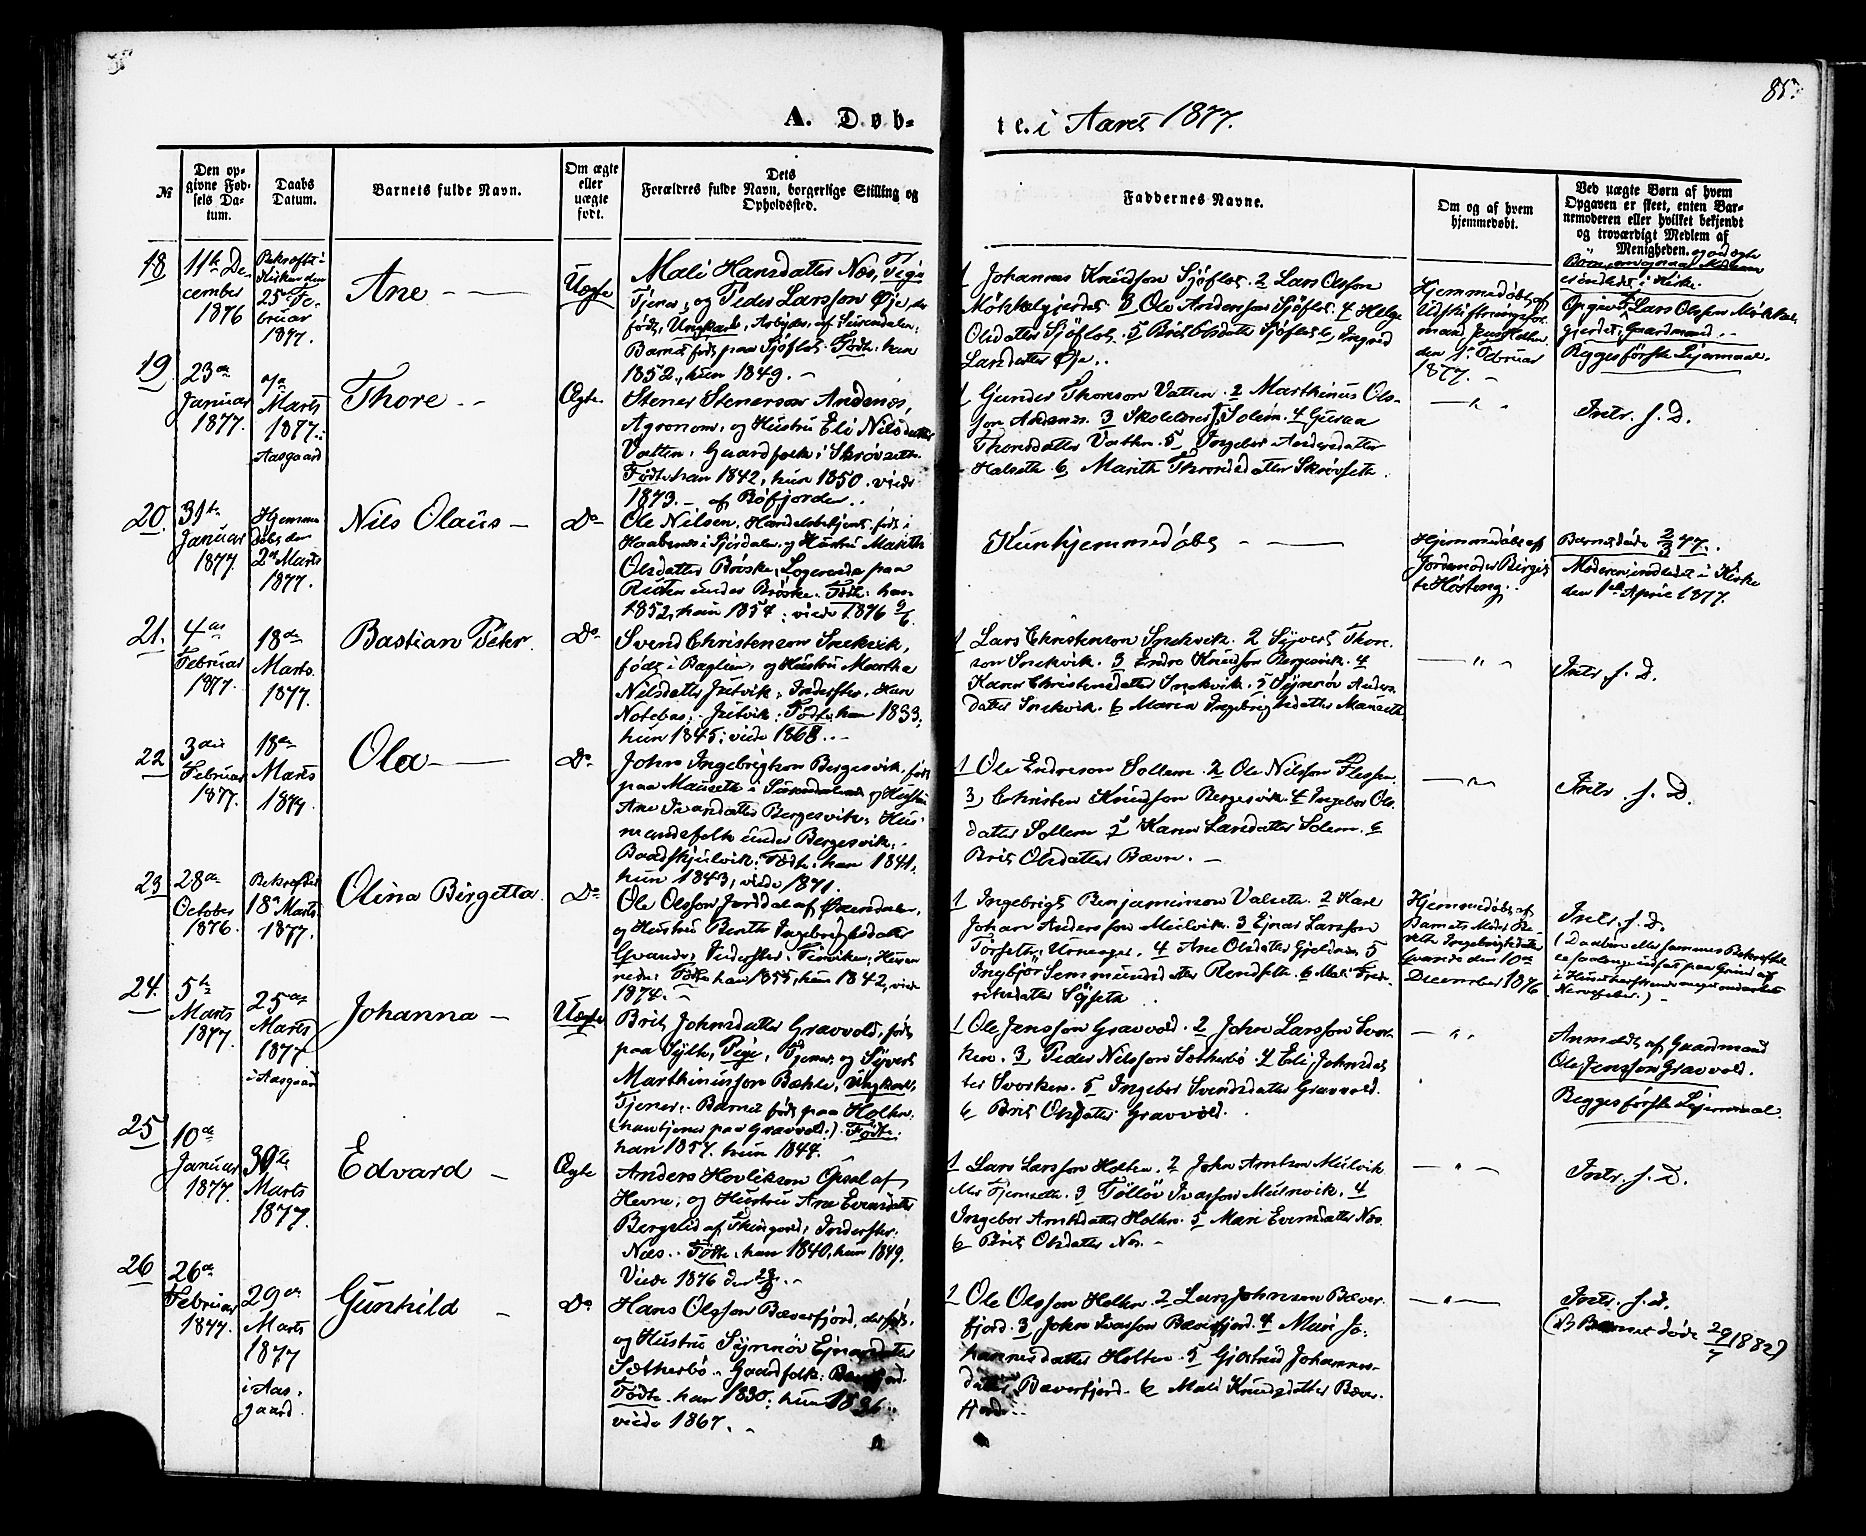 85.
A. Døb-
te. i Aaret 1877.
№
Den op-
givne Fød-
sels Da-
tum.
Daabs
Datum.
Barnets fulde Navn.
Om ægte
eller
uægte
født.
Dets
Forældres fulde Navn, borgerlige Stilling og
Opholdssted.
Faddernes Navne.
Om og af hvem
hjemmedøbt.
Ved uægte Børn af hvem
Opgaven er skeet, enten Bar-
nemoderen eller hvilket bekjendt
og troværdigt Medlem af
Menigheden.
18
11te De
cember
1876
Bekræftet i
Kirken den
25de Fe-
bruar
1877.
Ane
Uægte
Mali Hansdatter Næs, Pige
Tjener, og Peder Larsson Øje, der
født, Ungkarl, Arbejder, af Surendalen.
Barnet født paa Sjøflot. Fødte: han
1852, hun 1849.
1 Johannes Knudson Sjøflot. 2 Lars Olsson
Møkkelgjerdet. 3 Ole Anderson Sjøflot. 4 Helge
Olsdatter Sjøflot. 5 Brit Olsdatter Sjøflot. 6 Ingrid
Larsdatter Øje.
Hjemmedøbt af
Udskiftningsfor-
mand
den 1ste Februar
1877.
er indledet i Kirke.
Opgivet af Lars Olsson Møkkel-
gjerdet, Gaardmand.
Begges første Lejermaal.
19.
23de
Januar
1877.
Marts
1877.
Aasgaard
Thore
Ægte
Stener Stenerson Andenæs,
Agronom, og Hustru Eli Nilsdatter
Vatten, Gaardfolk, Skrøvseth.
Fødte: han 1842, hun 1850. viede
1873. af Bøfjorden.
1 Gunder Thoreson Vatten. 2 Marthinus Ols-
son Andenæs. 3 Skolelærer Solem. 4 Guroa
Thoresdatter Vatten. 5 Ingebor Andersdatter
Halseth. 6 Marith Throndsdatter Skrøvseth.
Intr. f. D.
20.
31te
Januar
1877.
Hjemme
døbt den
2den Marts
1877.
Nils Olaus
Do
Ole Nilsen, Handelsbetjent, født i
Haabenes i Stjørdalen, og Hustru Marith
Olsdatter Brøske, Logerende paa
Ruten under Brøske. Fødte: han
1852, hun 1854; viede 1876
Kun hjemmedøbt
Hjemmedøbt af
Jordemoder Birgit
te Høsteng.
Barnet døde 2/3 77.
Moderen indledet i Kirke
den 1ste April 1877.
21.
4de
Februar
1877.
18de
Marts
1877.
Bastian Peter.
Do
Svend Christenson Snekvik,
født i Bøglien, og Hustru Martha
Nilsdatter Jutvik, Inderster, Han
Notebas, Jutvik; Fødte: han 1833,
hun 1845; viede 1868.
1 Lars Christenson Snekvik. 2 Sjvert Thore
son Snekvik. 3 Endre Knudson Bergesvik. 4
Karen Christensdatter Snekvik. 5 Synnøv Anders
datter Snekvik. 6 Maren Ingebrigtsdatter Mauseth.
Intr. f. D.
22
3die
Februar
1877.
18de
Marts
1877.
Ola
Do
John Ingebrigtson Bergesvik, født
paa Mauseth i Surendalen og Hustru
Ane Ivarsdatter Bergesvik, Hus-
mandsfolk under Bergesvik,
Baadskjulvik. Fødte: han 1841,
hun 1843, viede 1871.
1 Ole Endreson Sollem. 2 Ole Nilsson Flessen.
3 Christen Knudson Bergesvik. 4 Ingebor Ols-
datter Sollem. 5 Karen Larsdatter Solem. 6
Brit Olsdatter Bævre.
Intr. f. D.
23
28de
October
1876.
Bekræftet
18de Marts
1877.
Olina Birgetta
Do
Ole Olsson Jorddal af Øxendalen,
og Hustru Bereth Ingebrigtsdatter
Gvande, Inderster, Finviken, Husma
nede; Fødte han 1855, hun 1842, viede
1874.
1 Ingebrigt Benjaminson Valseth. 2 Karl
Johan Andersson Mulvik. 3 Ejnar Larsson
Torseth, Ungkarl. 4 Ane Olsdatter Gjeldnæs. 5
Ingbjør Semmundsdatter Rendseth. 6 Mali Fred-
riksdatter Sæseth
Hjemmedøbt af
Barnets Moder Be-
reth Ingebrigtsdatter
Gvande den 10de
December 1876
Intr. f. D.
(Daaben eller sammes Bekræftelse
er saalænge udsat paa Grund af
24.
5te
Marts
1877.
25de
Marts
1877
i Aasgaard
Johanna
Uægte
Brit Johnsdatter Gravvold, født
paa Sylte, Pige, Tjener, og Sjvert
Marthinusson Bøhle, Ungkarl,
Tjener. Barnet født paa Holten.
(han tjener paa Gravvold.) Fødte:
han 1857. hun 1844.
1 Ole Jensson Gravvold. 2 John Larsson Svor-
ken. 3 Peder Nilsson Sætherbø. 4 Eli Johnsdat
ter Svorken. 5 Ingebor Svendsdatter Gravvold.
6 Brit Olsdatter Gravvold.
Anmeldt af Gaardmand
Ole Jensson Gravvold.
Begges første Lejermaal.
25
10de
Januar
1877.
30te
Marts
1877.
Edvard
Ægte
Anders Hovlikson Opsal af
Hevne, og Hustru Ane Evensdatter
Bergslid af Thingvold, Inderster:
Næs. Fødte: han 1840, hun 1849.
Viede 1876 den
1 Lars Larsson Holten. 2 John Arntson Mulvik
eller Tjemseth. 3 Tølløv Ivarsson Mulnvik. 4
Ingebor Arntsdatter Holten. 5 Mari Evensdatter Næs.
6 Brit Olsdatter Næs.
Intr. f. D.
26
26de
Februar
1877.
29de
Marts
1877
i Aas-
gaard.
Gunhild
Do
Hans Olsson Bæverfjord, der født,
og Hustru Synnøv Ejnarsdatter
Sætherbø, Gaardfolk, Bæverfjord.
Fødte: han 1830; hun 1836.
viede 1867.
1 Ole Olsson Holten. 2 Lars Johnson Bæver-
fjord. 3 John Ivarsson Bæverfjord. 4 Mari Jo-
hannesdatter Holten. 5 Gjertrud Johannes-
datter Bæverfjord. 6 Mali Knudsdatter Bæver-
fjord.
Intr. f. D.
(Barnet døde 29/7 1882)